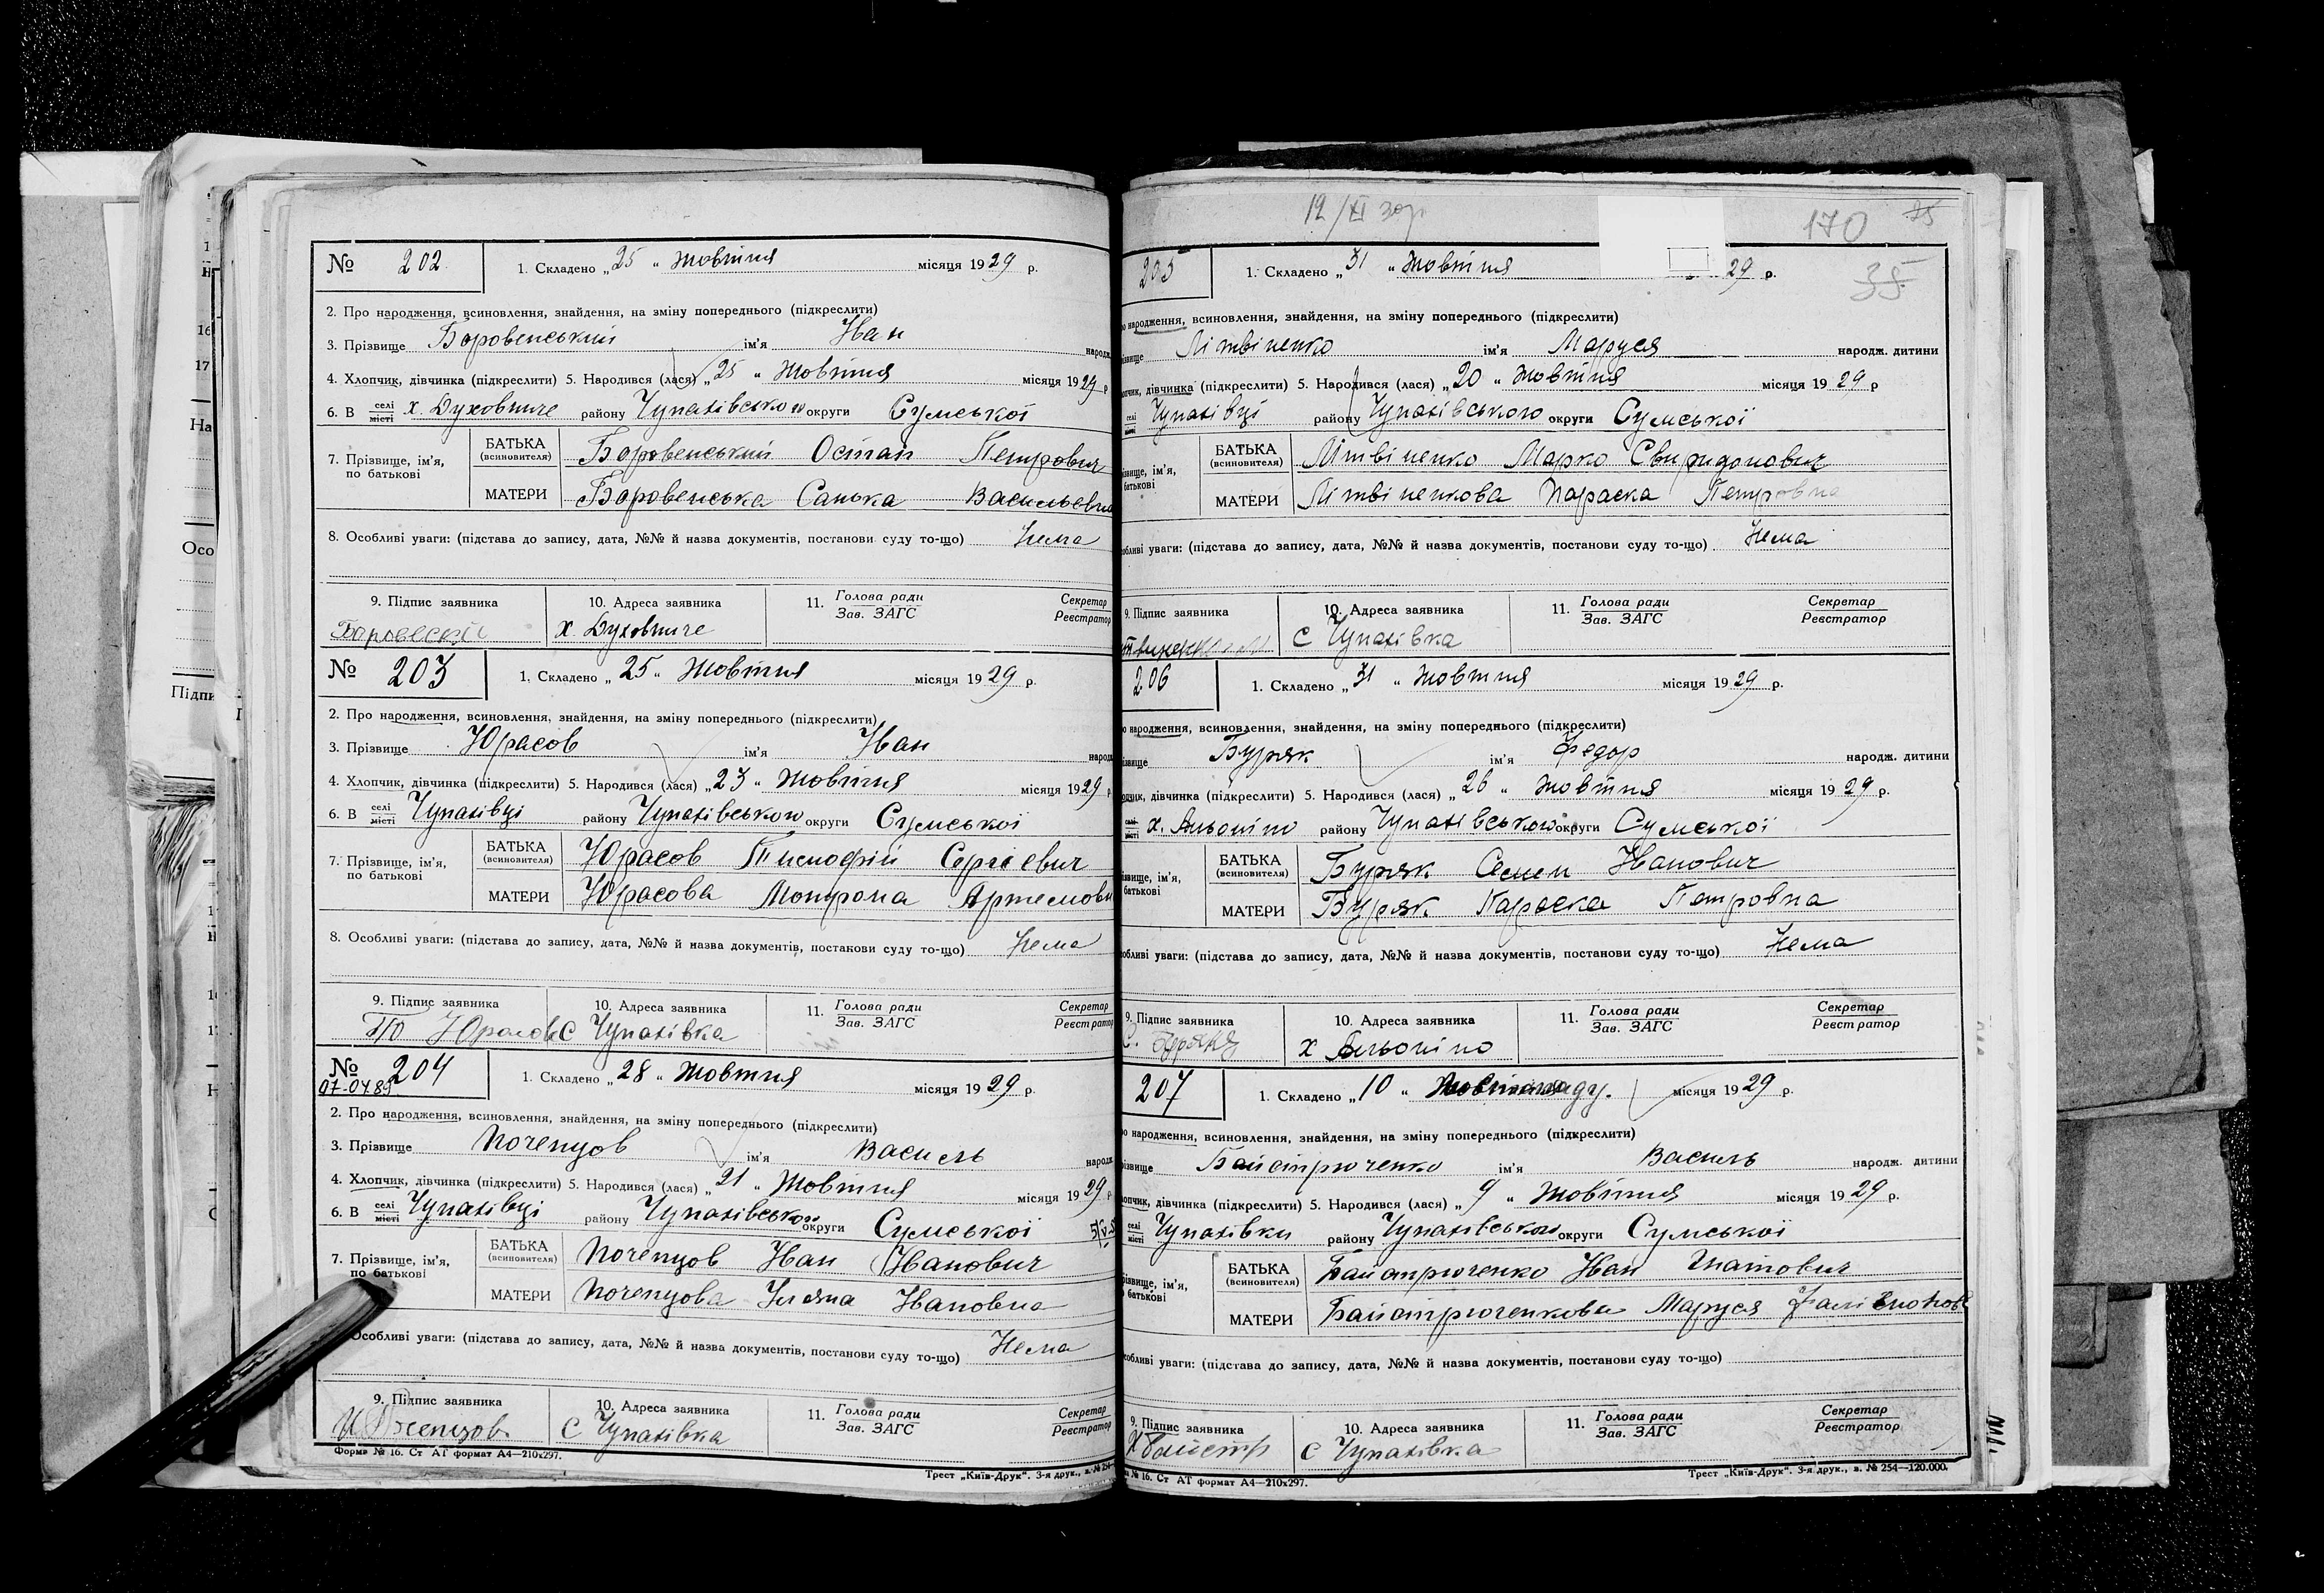 № 202 1. Складено „25" Жовтня місяця 1929 р.
2. Про народження, всиновлення, знайдення, на зміну попереднього (підкреслити)
3. Прізвище Боровенський ім'я Іван народж.
4. Хлопчик, дівчинка (підкреслити) 5. Народився (лася) „25" Жовтня місяця 1929 р
6. В селі місті х. Духовниче району Чупахівського округи Сумської
7. Прізвище, ім'я, по батькові БАТЬКА (всиновителя) Боровенський Остап Петрович
МАТЕРИ Боровенська Санька Васильевна
8. Особливі уваги: (підстава до запису, дата, №№ й назва документів, постанови суду то-що) Нема
9. Підпис заявника 10. Адреса заявника 11. Голова ради Зав. ЗАГС Секретар Реєстратор
х. Духовниче
№ 203 1. Складено „25" Жовтня місяця 1929 р.
2. Про народження, всиновлення, знайдення, на зміну попереднього (підкреслити)
3. Прізвище Юрасов ім'я Іван народж
4. Хлопчик, дівчинка (підкреслити) 5. Народився (лася) „23" Жовтня місяця 1929 р
6. В селі місті Чупахівці району Чупахівського округи Сумської
7. Прізвище, ім'я, по батькові БАТЬКА (всиновителя) Юрасов Тимофій Сергієвич
МАТЕРИ Юрасова Мотрона Артемовн
8. Особливі уваги: (підстава до запису, дата, №№ й назва документів, постанови суду то-що) Нема
9. Підпис заявника 10. Адреса заявника 11. Голова ради Зав. ЗАГС Секретар Реєстратор
Юрасов С Чупахівка
№ 204 1. Складено „28" Жовтня місяця 1929 р.
07-0789
2. Про народження, всиновлення, знайдення, на зміну попереднього (підкреслити)
3. Прізвище Почепцов ім'я Василь народж
4. Хлопчик, дівчинка (підкреслити) 5. Народився (лася) „21" Жовтня місяця 1929 р
6. В селі місті Чупахівці району Чупахівського округи Сумської
7. Прізвище, ім'я, по батькові БАТЬКА (всиновителя) Почепцов Іван Іванович
МАТЕРИ Почепцова Уляна Івановна
Особливі уваги: (підстава до запису, дата, №№ й назва документів, постанови суду то-що) Нема
9. Підпис заявника 10. Адреса заявника 11. Голова ради Зав. ЗАГС Секретар Реєстратор
С Чупахівка
Форма № 16. Ст АТ формат А4—210х297.
Трест „Київ-Друк". 3-я друк., з. № 254
12/XI
170 35
35
205 1. Складено „31" Жовтня 29 р.
народження, всиновлення, знайдення, на зміну попереднього (підкреслити)
Літвіненко ім'я Маруся народж. дитини
дівчинка (підкреслити) 5. Народився (лася) „20" Жовтня місяця 1929 р
селі місті Чупахівці району Чупахівського округи Сумської
ім'я, батькові БАТЬКА (всиновителя) Літвіненко Марко Свиридонович
МАТЕРИ Літвіненкова Параска Петровна
уваги: (підстава до запису, дата, №№ й назва документів, постанови суду то-що) Нема
9. Підпис заявника 10. Адреса заявника 11. Голова ради Зав. ЗАГС Секретар Реєстратор
С Чупахівка
206 1. Складено „31" Жовтня місяця 1929 р.
народження, всиновлення, знайдення, на зміну попереднього (підкреслити)
Буряк ім'я Федор народж. дитини
дівчинка (підкреслити) 5. Народився (лася) „26" Жовтня місяця 1929 р.
х. Альонино району Чупахівського округи Сумської
ім'я, батькові БАТЬКА (всиновителя) Буряк Семен Іванович
МАТЕРИ Буряк Параска Петровна
уваги: (підстава до запису, дата, №№ й назва документів, постанови суду то-що) Нема
9. Підпис заявника 10. Адреса заявника 11. Голова ради Зав. ЗАГС Секретар Реєстратор
х Альонино
207 1. Складено „10" місяця 1929 р.
народження, всиновлення, знайдення, на зміну попереднього (підкреслити)
Байстрюченко ім'я Василь народж. дитини
дівчинка (підкреслити) 5. Народився (лася) „9" Жовтня місяця 1929 р.
селі місті Чупахівки району Чупахівського округи Сумської
ім'я, батькові БАТЬКА (всиновителя) Байстрюченко Іван Ігнатович
МАТЕРИ Байстрюченкова Маруся
уваги: (підстава до запису, дата, №№ й назва документів, постанови суду то-що)
9. Підпис заявника 10. Адреса заявника 11. Голова ради Зав. ЗАГС Секретар Реєстратор
С Чупахівка
№ 16. Ст АТ формат А4—210х297.
Трест „Київ-Друк". 3-я друк., з. № 254—120.000.